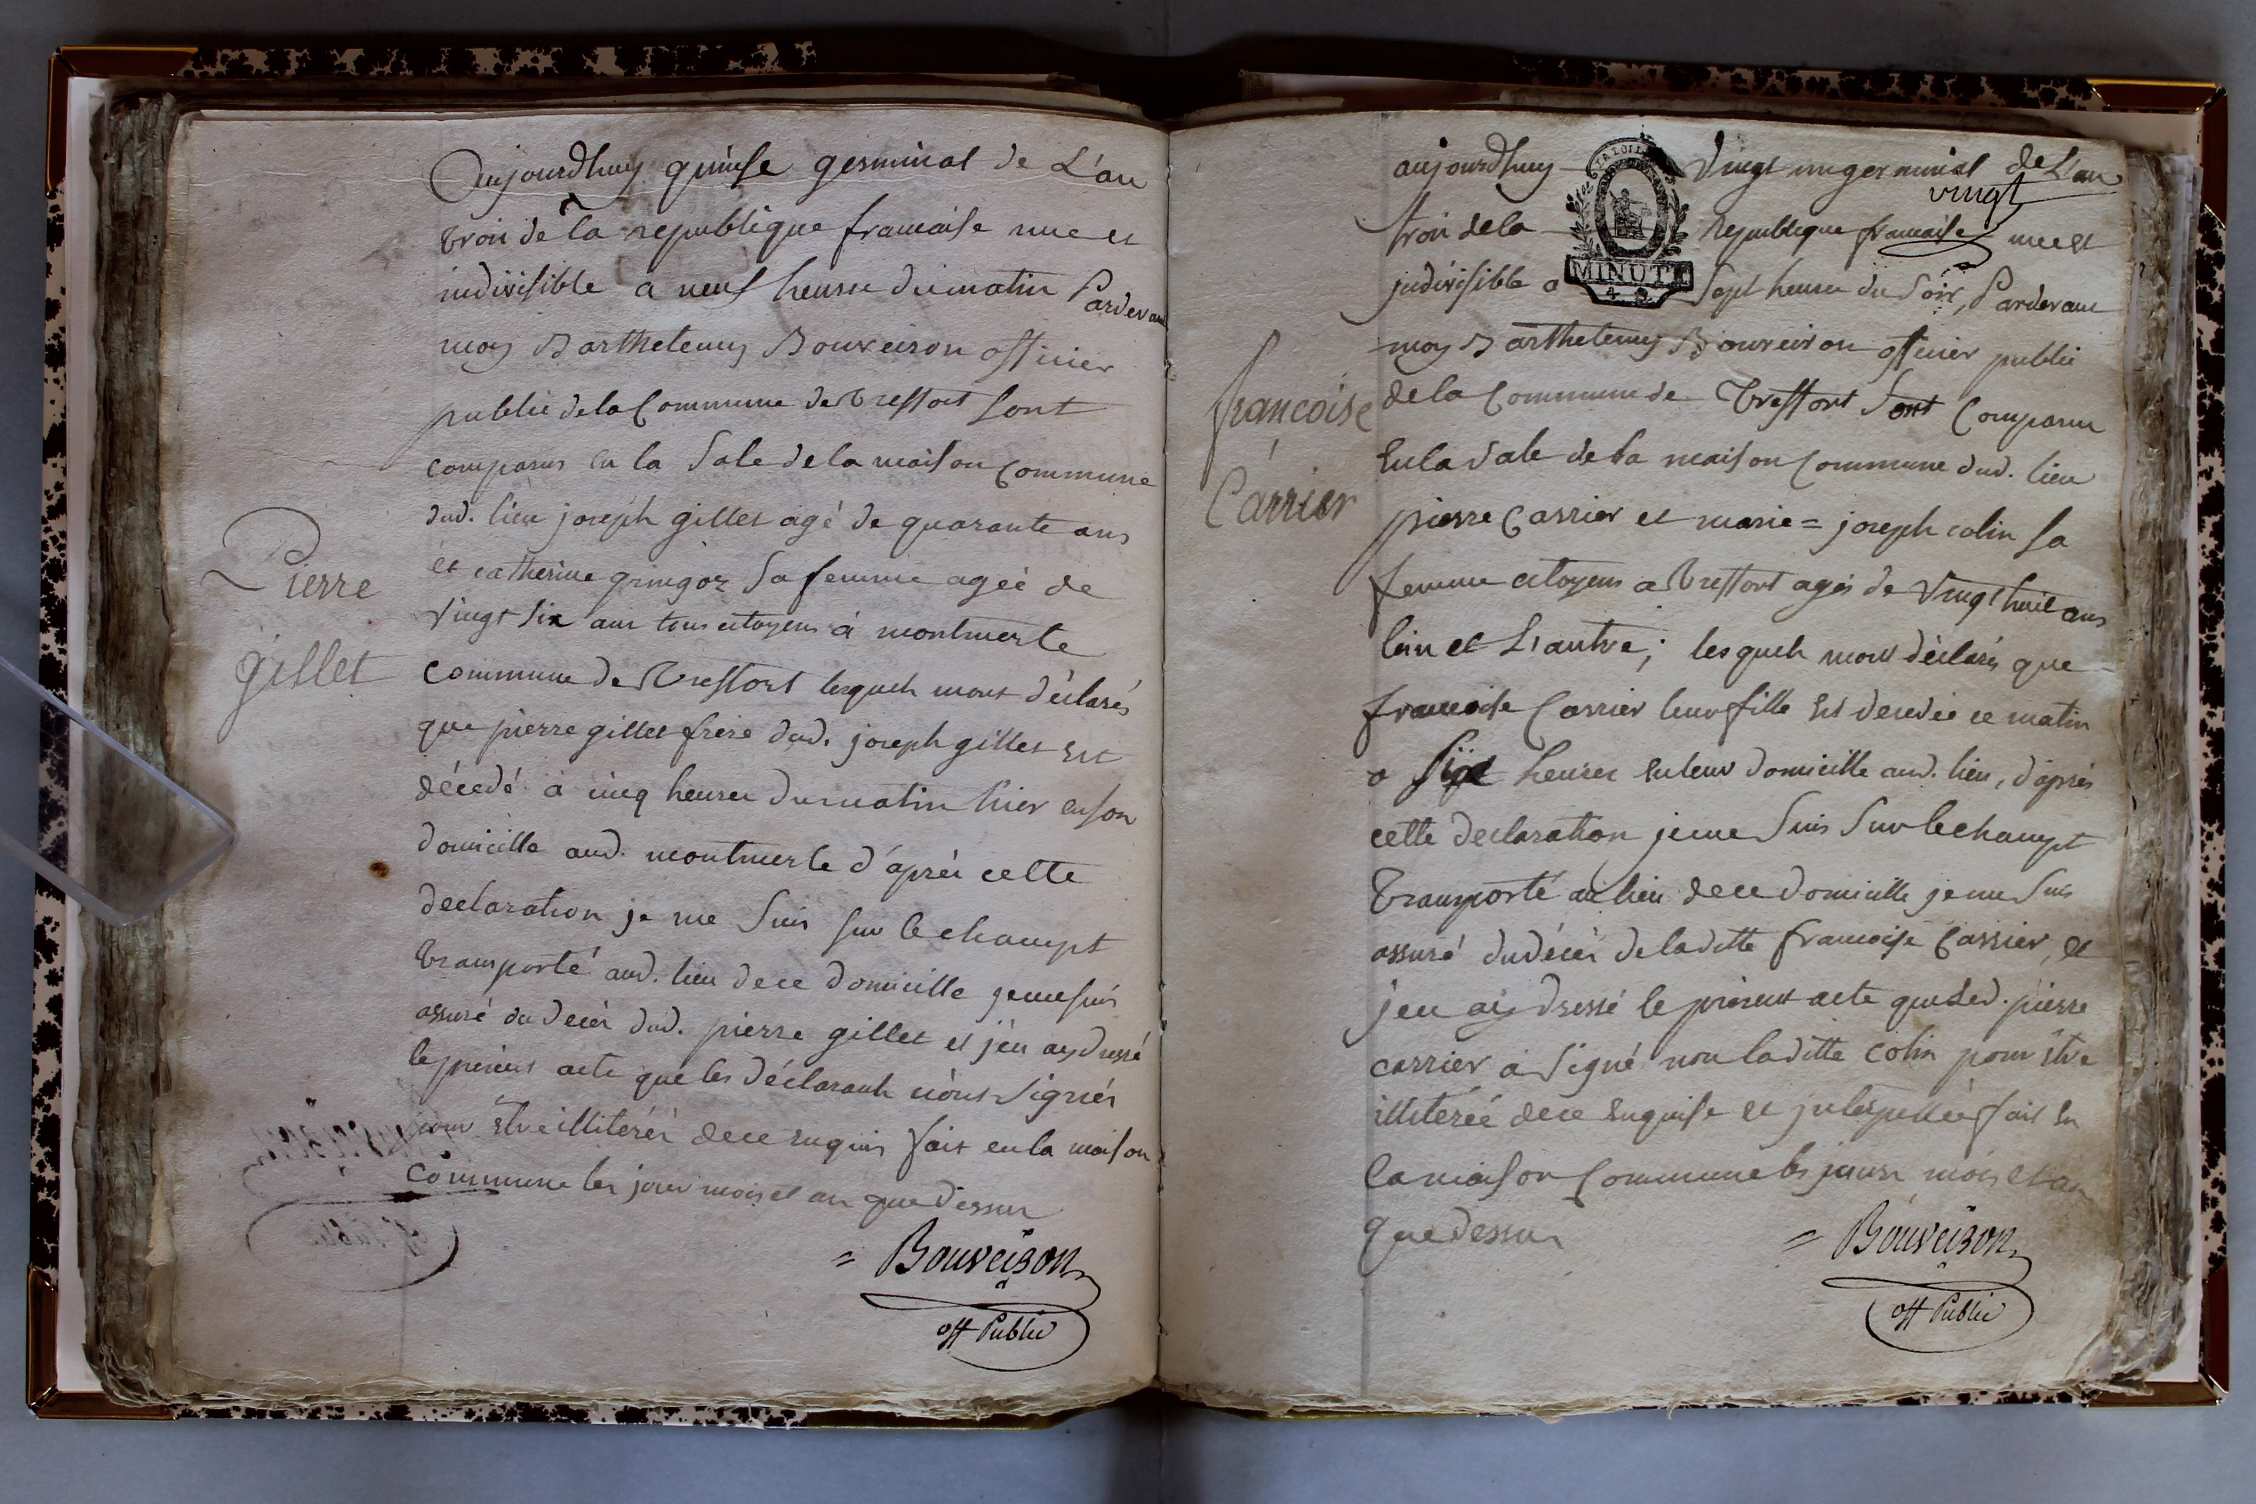 Aujourdhuy quinse germinal de L'an
trois de la republique francaise une et
indivisible a neuf heures du matin Pardevant
moy Barthelemy Bouveiron officier
public de la Commune de Treffort Sont
comparus en la Sale de la maison Commune
dud. lieu joseph gillet agé de quarante ans
et catherine gringoz Sa femme ageé de
vingt six ans tous citoyens à montmerle
commune de Treffort lesquels mont déclarés
que pierre gillet frere dud. joseph gillet est
décedé à cinq heures du matin hier en son
domicille aud. montmerle d'après cette
declaration je me Suis Sur le champt
transporté aud. lieu de ce domicille je me suis
assuré du decès dud. pierre gillet et j'en ay dressé
le present acte que les déclarants n'ont Signés
pour etre illiterés de ce enquis fait en la maison
commune les jour mois et an que dessus
= Bouveiron
off Public
Pierre
gillet
aujourdhuy vingt un germinal de L'an
vingt
trois de la republique francaise une et
LA LOI
MINUTE
indivisible a Sept heures du Soir, Pardevant
moy Barthelemy Bouveiron officier public
de la Commune de Treffort Sont Comparus
En la Sale de la maison Commune dud. lieu
pierre Carrier et marie = joseph colin Sa
femme citoyens a Treffort agés de vingt huit ans
lun et L'autre; lesquels mont déclarés que
francoise Carrier leur fille Est decedée ce matin
a heures en leur domicille aud. lieu, d'après
cette declaration je me Suis Sur le champt
transporté au lieu de ce domicille je me Suis
assuré du décès de laditte francoise Carrier, et
j'en ay dressé le present acte que Led. pierre
carrier à Signé non laditte colin pour etre
illiterée de ce Enquise et interpellée fait En
la maison Commune les jour mois et an
que dessus
= Bouveiron
off Public
francoise
Carrier